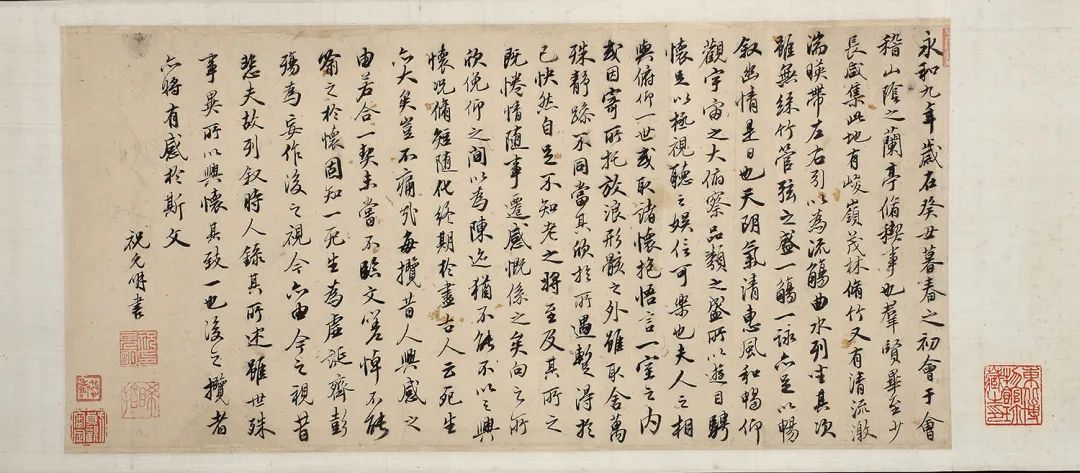 永和九年歲在癸丑暮春之初會于會
稽山陰之蘭亭脩禊事也羣賢畢至少
長咸集此地有峻嶺茂林脩竹又有清流激
湍暎帶左右引以為流觴曲水列坐其次
雖無絲竹管弦之盛一觴一詠亦足以暢
叙幽情是日也天朗氣清惠風和暢仰
觀宇宙之大俯察品類之盛所以遊目騁
懷足以極視聽之娛信可樂也夫人之相
與俯仰一世或取諸懷抱悟言一室之内
或因寄所托放浪形骸之外雖取舍萬
殊靜躁不同當其欣於所遇暫得於
己快然自足不知老之將至及其所之
既惓情隨事遷感慨係之矣向之所
欣俛仰之間以為陳迹猶不能不以之興
懷況脩短隨化終期於盡古人云死生
亦大矣豈不痛哉每攬昔人興感之
由若合一契未嘗不臨文嗟悼不能
喻之於懷固知一死生為虛誕齊彭
殤為妄作後之視今亦由今之視昔
悲夫故列叙時人錄其所述雖世殊
事異所以興懷其致一也後之攬者
亦將有感於斯文
祝允明書